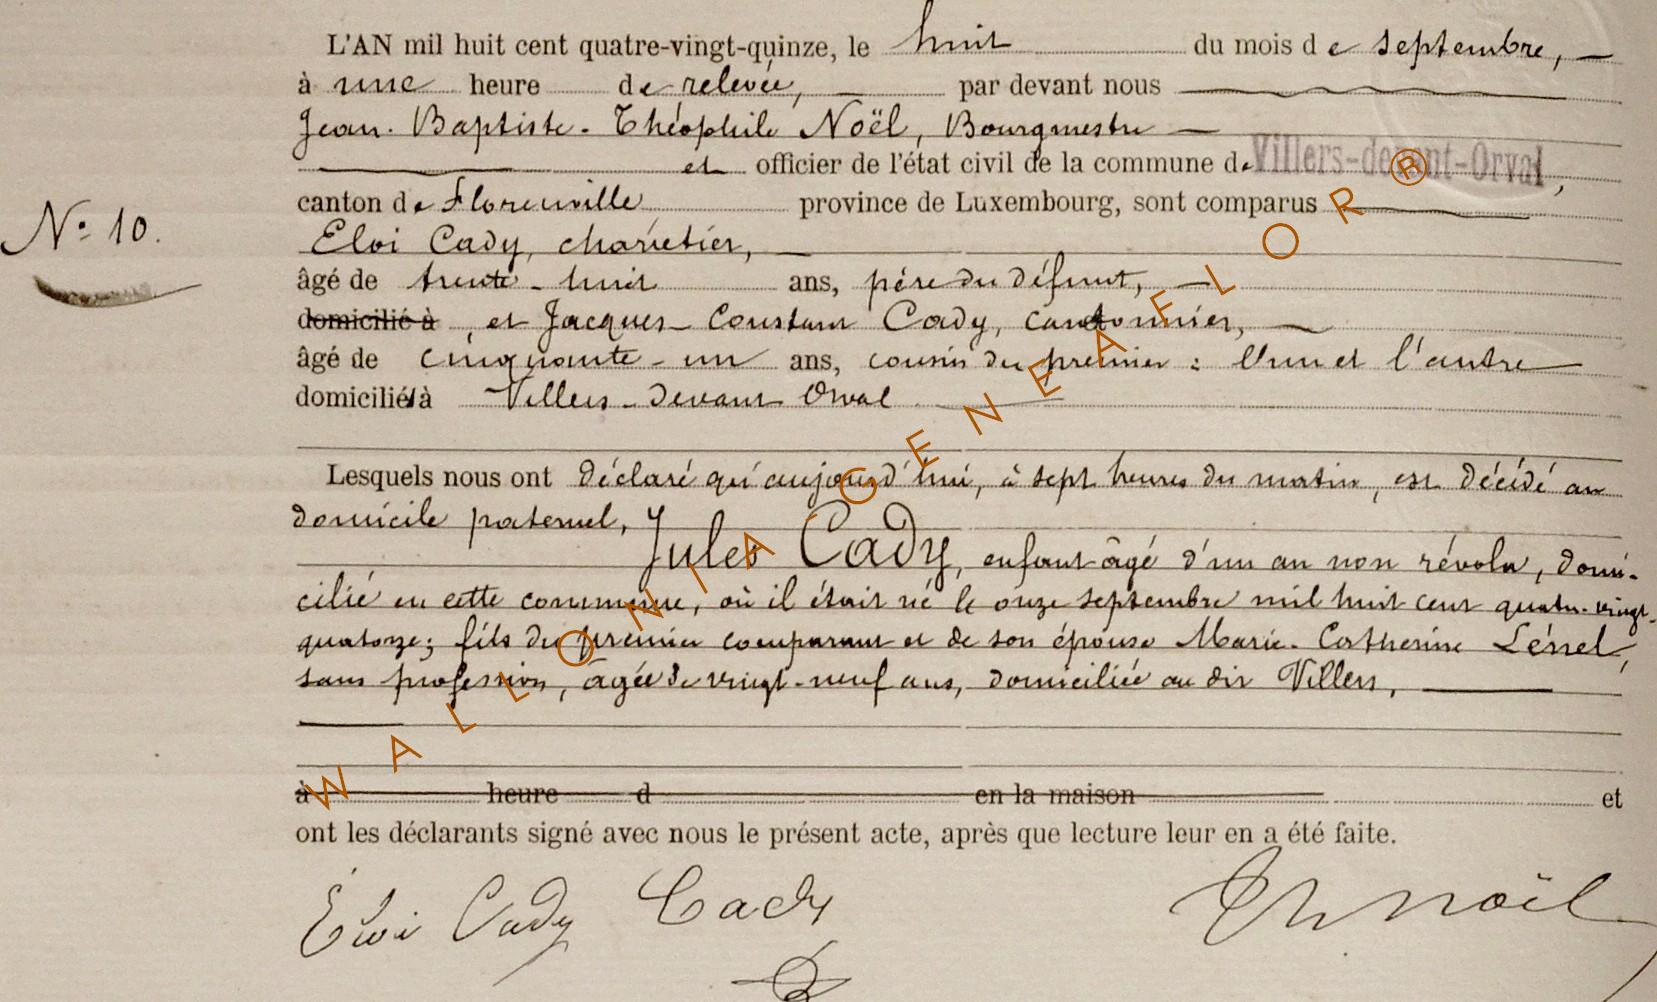 L'AN mil huit cent quatre-vingt-quinze, le huit du mois de septembre,
à une heure de relevée, par devant nous
Jean-Baptiste-Théophile Noël, Bourgmestre
et officier de l'état civil de la commune de Villers-devant-Orval,
canton de Florenville province de Luxembourg, sont comparus
N° 10.
Eloi Cady, charretier,
âgé de trente-huit ans, père du défunt,
domicilié à, et Jacques-Constant Cady, cantonnier,
âgé de cinquante-un ans, cousin du premier : l'un et l'autre
domiciliés à Villers-devant Orval
Lesquels nous ont déclaré qu'aujourd'hui, à sept heures du matin, est décédé au
domicile paternel,
Jules Cady, enfant âgé d'un an non révolu, domi-
cilié en cette commune, où il était né le onze septembre mil huit cent quatre-vingt-
quatorze; fils du premier comparant et de son épouse Marie-Catherine
sans profession, âgée de vingt-neuf ans, domiciliée au dit Villers,
à heure d en la maison et
ont les déclarants signé avec nous le présent acte, après que lecture leur en a été faite.
Éloi Cady Cady Th Noël
WALLONIA GENEAFLOR®